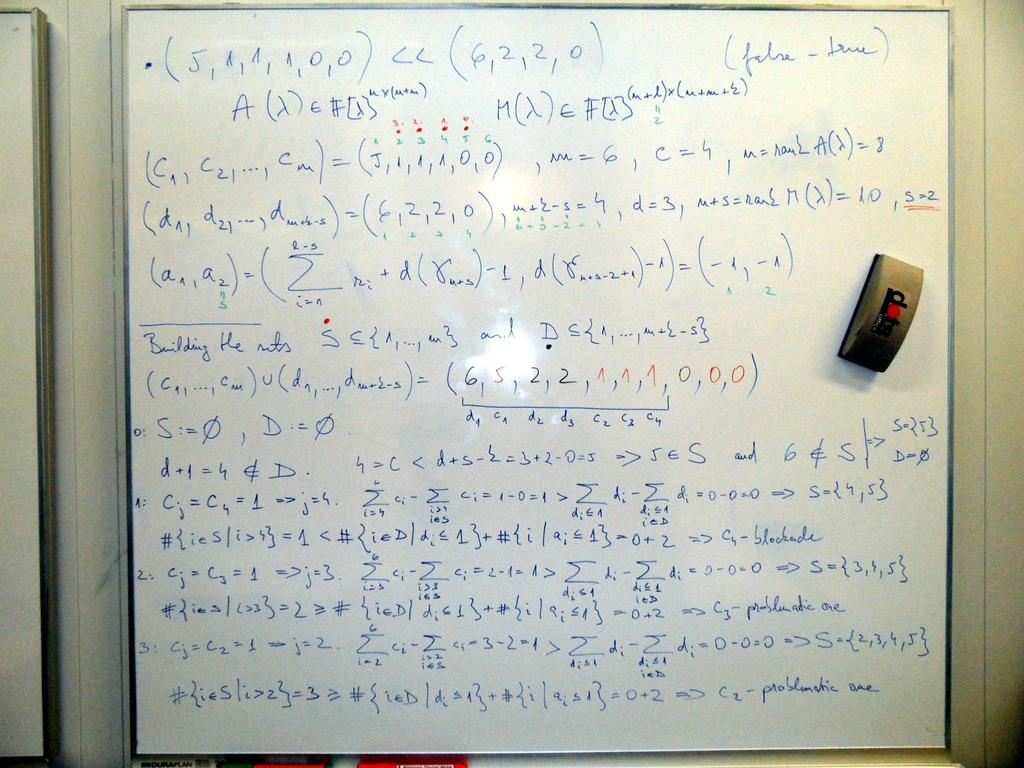 • (5,1,1,1,0,0) << (6,2,2,0) (false - true)
A(λ) ∈ F[λ]^{n×(n+m)} M(λ) ∈ F[λ]^{(n+l)×(n+m+k)}
" 2
3. 2. 1. 0.
1 2 3 4 5 6
(c₁, c₂, ..., c_m) = (5,1,1,1,0,0), m = 6, c = 4, n = rank A(λ) = 8
(d₁, d₂, ..., d_{m+k-s}) = (6,2,2,0), m+k-s = 4, d = 3, n+s = rank M(λ) = 10, s=2
1 2 3 4 6+0-2=4
(a₁, a₂) = (∑_{i=1}^{k-s} r_i + d(γ_{n+s}) - 1, d(γ_{n+s-2+1}) - 1) = (-1, -1)
" s 1 2
Building the sets S ⊆ {1, ..., m} and D ⊆ {1, ..., m+k-s}
(c₁, ..., c_m) ∪ (d₁, ..., d_{m+k-s}) = (6,5,2,2,1,1,1,0,0,0)
d₁ c₁ d₂ d₃ c₂ c₃ c₄
0: S := ∅, D := ∅.
d+1 = 4 ∉ D. 4 = c < d+s-k = 3+2-0 = 5 ⇒ 5 ∈ S and 6 ∉ S | ⇒ S={5} D=∅
1: c_j = c₄ = 1 ⇒ j=4. ∑_{i=4}^{6} c_i - ∑_{i>4, i∈S} c_i = 1-0 = 1 > ∑_{d_i≤1} d_i - ∑_{d_i≤1, i∈D} d_i = 0-0=0 ⇒ S={4,5}
#{i∈S | i>4} = 1 < #{i∈D | d_i≤1} + #{i | a_i≤1} = 0+2 ⇒ c₄-blockade
2: c_j = c₃ = 1 ⇒ j=3. ∑_{i=3}^{6} c_i - ∑_{i>3, i∈S} c_i = 2-1 = 1 > ∑_{d_i≤1} d_i - ∑_{d_i≤1, i∈D} d_i = 0-0=0 ⇒ S={3,4,5}
#{i∈S | i>3} = 2 ≥ #{i∈D | d_i≤1} + #{i | a_i≤1} = 0+2 ⇒ c₃-problematic one
3: c_j = c₂ = 1 ⇒ j=2. ∑_{i=2}^{6} c_i - ∑_{i>2, i∈S} c_i = 3-2 = 1 > ∑_{d_i≤1} d_i - ∑_{d_i≤1, i∈D} d_i = 0-0=0 ⇒ S={2,3,4,5}
#{i∈S | i>2} = 3 ≥ #{i∈D | d_i≤1} + #{i | a_i≤1} = 0+2 ⇒ c₂-problematic one
dots
DURAPLAN